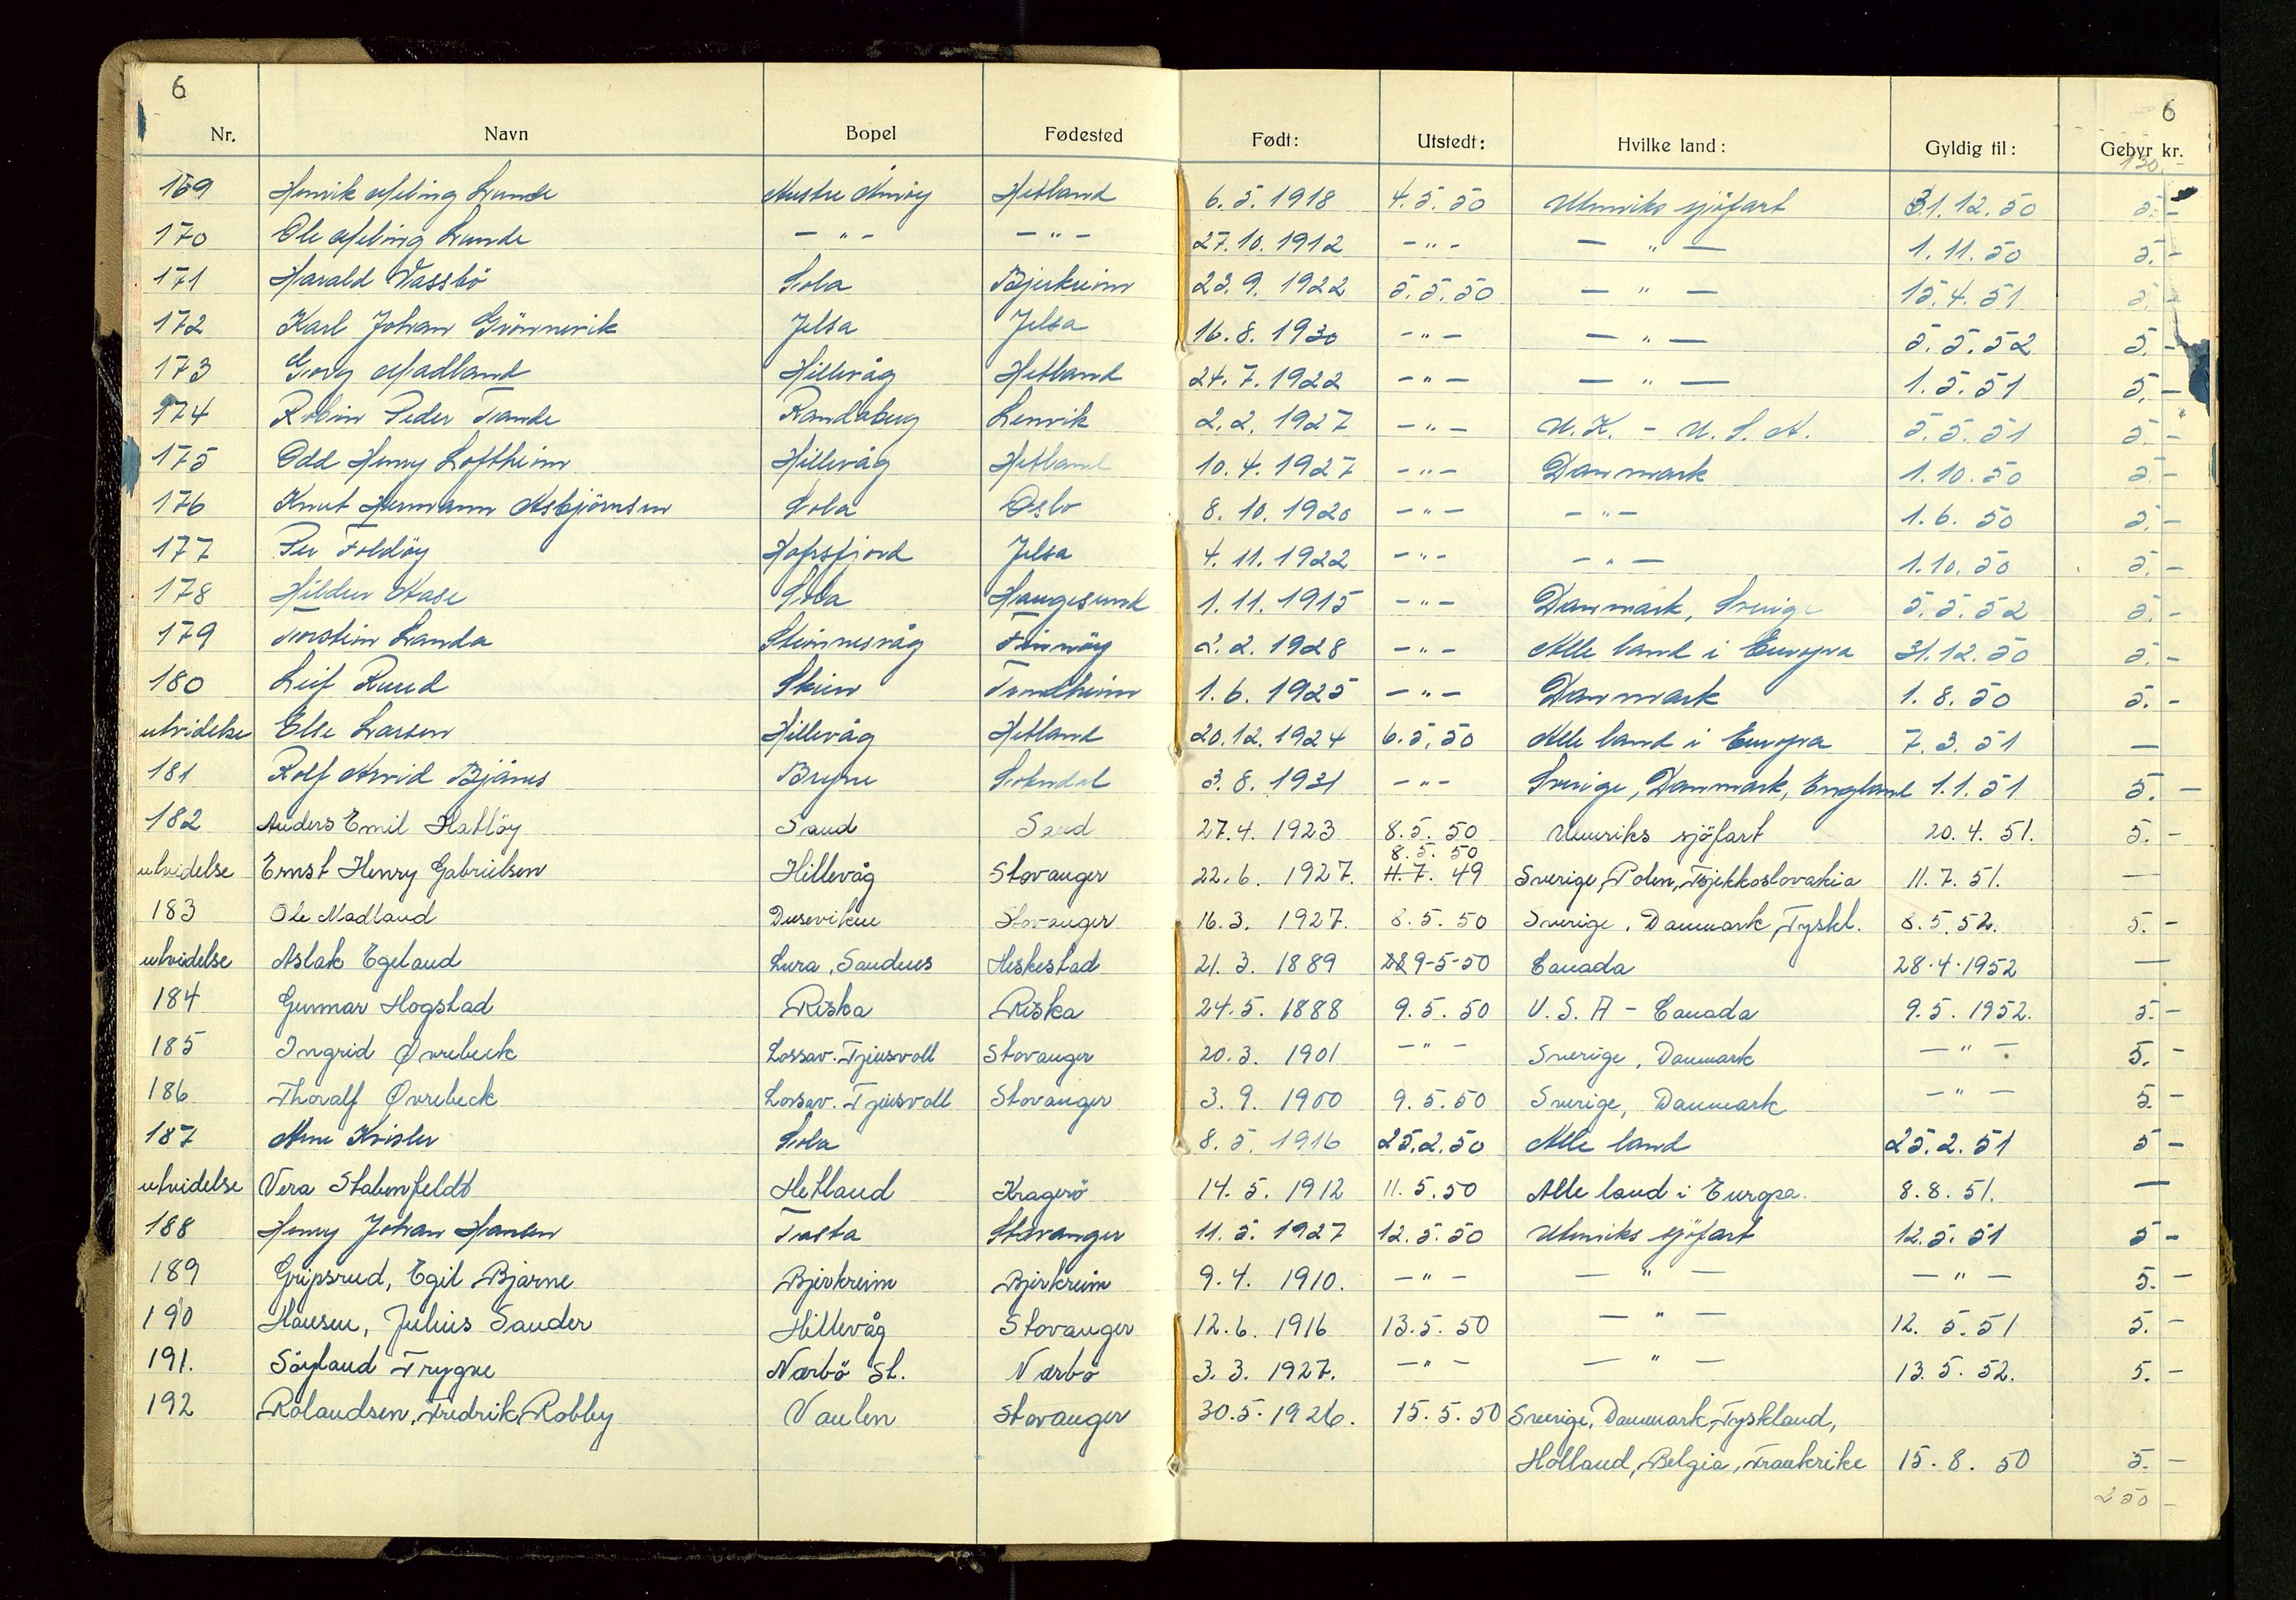 6 6
Nr. Navn Bopel Fødested Født: Utstedt: Hvilke land: Gyldig til: Gebyr kr.
130.-
169 Henrik Meling Lunde Austre Åmöy Hetland 6. 5. 1918 4. 5. 50 Utenriks sjöfart 31. 12. 50 5. -
170 Ole Meling Lunde - " - - " - 27. 10. 1912 - " - - " - 1. 11. 50 5. -
171 Harald Vassbö Sola Bjerkreim 23. 9. 1922 5. 5. 50 - " - 15. 4. 51 5. -
172 Karl Johan Grönnevik Jelsa Jelsa 16. 8. 1930 - " - - " - 5. 5. 52 5. -
173 Georg Madland Hillevåg Hetland 24. 7. 1922 - " - - " - 1. 5. 51 5. -
174 Robin Peder Tande Randaberg Lenvik 2. 2. 1927 - " - U. K. - U. S. A. 5. 5. 51 5. -
175 Odd Henry Loftheim Hillevåg Hetland 10. 4. 1927 - " - Danmark 1. 10. 50 5. -
176 Knut Hermann Asbjörnsen Sola Oslo 8. 10. 1920 - " - - " - 1. 6. 50 5. -
177 Per Foldöy Hafrsfjord Jelsa 4. 11. 1922 - " - - " - 1. 10. 50 5. -
178 Hildur Aase Sola Haugesund 1. 11. 1915 - " - Danmark, Sverige 5. 5. 52 5. -
179 Torstein Landa Steinnesvåg Finnöy 2. 2. 1928 - " - Alle land i Europa 31. 12. 50 5. -
180 Leif Ruud Skien Trondheim 1. 6. 1925 - " - Danmark 1. 8. 50 5. -
utvidelse Else Larsen Hillevåg Hetland 20. 12. 1924 6. 5. 50 Alle land i Europa 7. 3. 51 —
181 Rolf Arvid Bjånes Bryne Sokndal 3. 8. 1931 - " - Sverige, Danmark, England 1. 1. 51 5. -
182 Anders Emil Hatlöy Sand Sand 27. 4. 1923 8. 5. 50 Utenriks sjöfart 20. 4. 51. 5. -
8. 5. 50
utvidelse Ernst Henry Gabrielsen Hillevåg Stavanger 22. 6. 1927. 11. 7. 49 Sverige, Polen, Tsjekkoslovakia 11. 7. 51. —
183 Ole Madland Duseviken Stavanger 16. 3. 1927. 8. 5. 50 Sverige, Danmark, Tyskl. 8. 5. 52. 5. -
utvidelse Aslak Egeland Lura, Sandnes Heskestad 21. 3. 1889 9-5-50 Canada 28.4.1952 —
184 Gunnar Hogstad Riska Riska 24. 5. 1888 9. 5. 50 U. S. A - Canada 9. 5. 1952. 5. -
185 Ingrid Øvrebeck Lassav. Tjensvoll Stavanger 20. 3. 1901 - " - Sverige, Danmark - " - 5. -
186 Thoralf Øvrebeck Lassav. Tjensvoll Stavanger 3. 9. 1900 9. 5. 50 Sverige, Danmark - " - 5. -
187 Arne Kvisler Sola 8. 5. 1916 25. 2. 50 Alle land 25. 2. 51 5 -
utvidelse Vera Stabenfeldt Hetland Kragerö 14. 5. 1912 11. 5. 50 Alle land i Europa. 8. 8. 51. —
188 Henry Johan Hansen Tasta Stavanger 11. 5. 1927 12. 5. 50 Utenriks sjöfart 12. 5. 51 5 -
189 Gripsrud, Egil Bjarne Bjerkreim Bjerkreim 9. 4. 1910. - " - - " - - " - 5. -
190 Hansen, Julius Sander Hillevåg Stavanger 12. 6. 1916 13. 5. 50 - " - 12. 5. 51 5. -
191. Söyland Trygve Nærbö St. Nærbö 3. 3. 1927. - " - - " - 13. 5. 52. 5. -
192 Rolandsen, Fredrik Robby Vaulen Stavanger 30. 5. 1926. 15. 5. 50 Sverige, Danmark, Tyskland,
Holland, Belgia, Frankrike 15. 8. 50 5. -
250 -